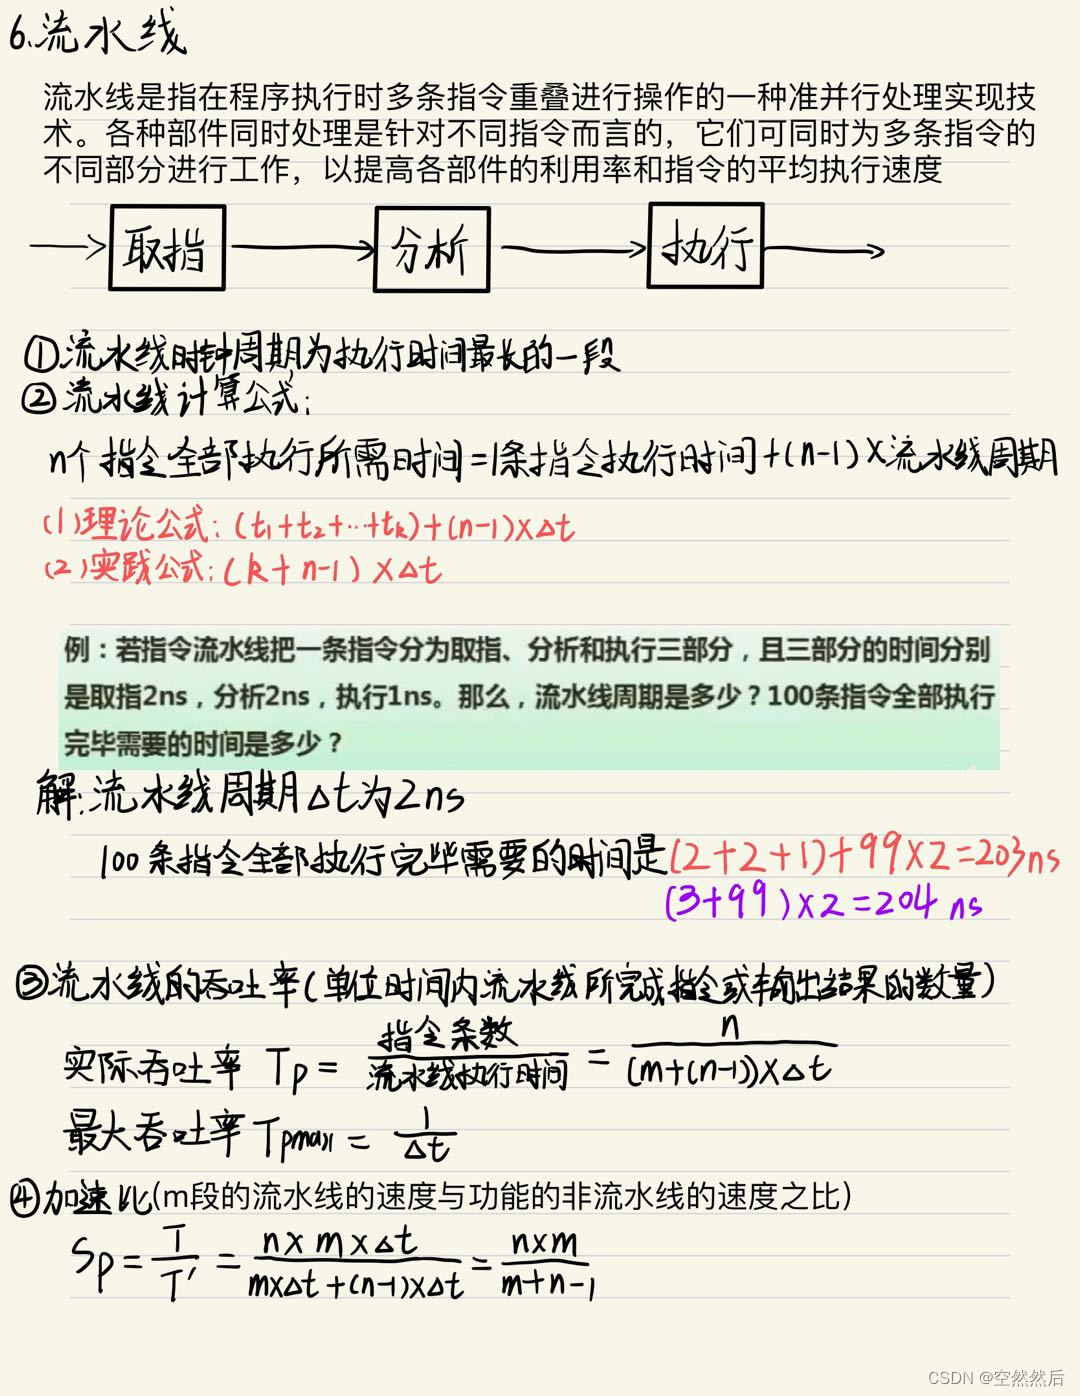 6.流水线
流水线是指在程序执行时多条指令重叠进行操作的一种准并行处理实现技
术。各种部件同时处理是针对不同指令而言的，它们可同时为多条指令的
不同部分进行工作，以提高各部件的利用率和指令的平均执行速度
取指 分析 执行
①流水线时钟周期为执行时间最长的一段
②流水线计算公式:
n个指令全部执行所需时间=1条指令执行时间+(n-1)×流水线周期
(1)理论公式:(t₁+t₂+…+tk)+(n-1)×Δt
(2)实践公式:(k+n-1)×Δt
例：若指令流水线把一条指令分为取指、分析和执行三部分，且三部分的时间分别
是取指2ns，分析2ns，执行1ns。那么，流水线周期是多少？100条指令全部执行
完毕需要的时间是多少？
解:流水线周期Δt为2ns
100条指令全部执行完毕需要的时间是(2+2+1)+99×2=203ns
(3+99)×2=204 ns
③流水线的吞吐率(单位时间内流水线所完成指令或输出结果的数量)
实际吞吐率 Tp = 指令条数/流水线执行时间 = n/(m+(n-1))×Δt
最大吞吐率 Tpmax = 1/Δt
④加速比(m段的流水线的速度与功能的非流水线的速度之比)
Sp = T/T′ = n×m×Δt/m×Δt+(n-1)×Δt = n×m/m+n-1
CSDN @空然然后